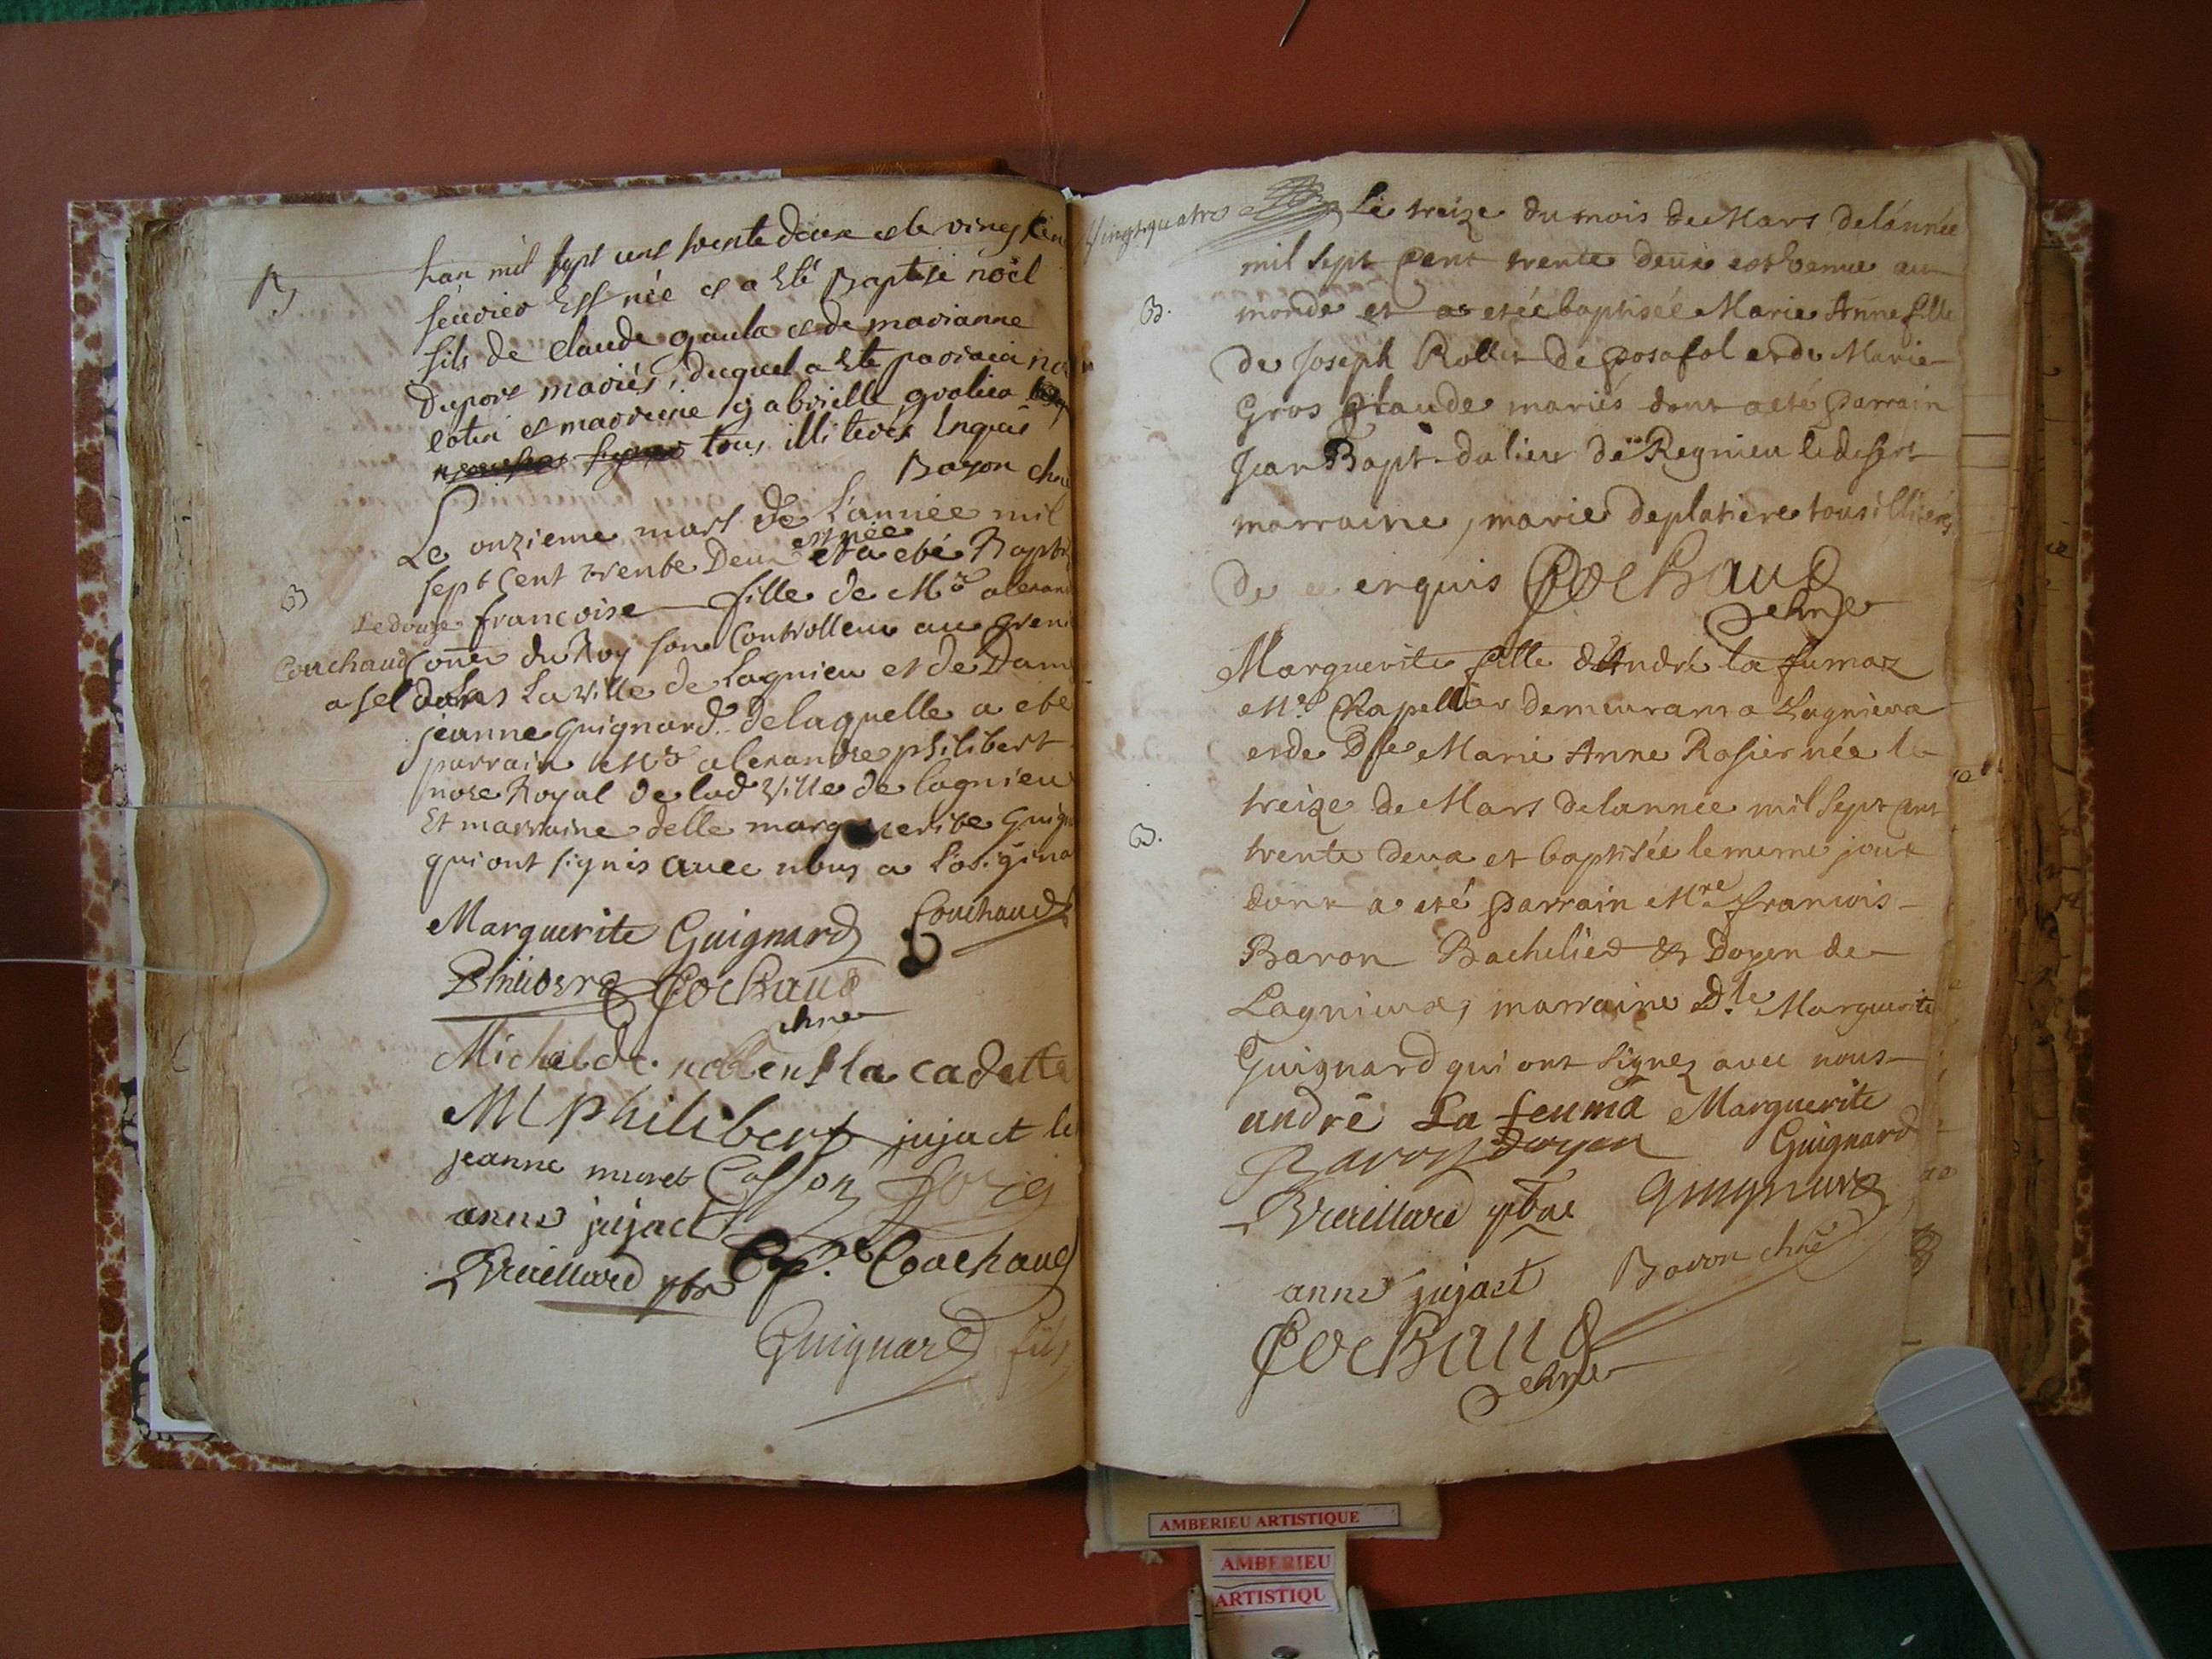 B
han mil sept cent trente deux et le vingt
feuvrier Est née et a Eté Baptisé noël
fils de claude gaula et de marianne
Duport mariés, duquel a Eté
et marreine gabrielle
tous illiteres Enquis
Le onzieme mars de L'année mil
est née
sept Cent trente Deux et a eté
B
Ledouze francoise fille de Mr
Couchaud Coner du Roy son Controlleur au
a sel dans La ville de Lagnieu et de
jeanne Guignard delaquelle a eté
parrain Mr alexandre philibert
nore Royal de lad Ville de lagnieu
Et marraine delle marguerite
qui ont signés avec nous a
Marguerite Guignard Couchaud
Philibert Cochaud
chne
Michel de la cadette
M philibert jujact
jeanne muret Casson
anne jujact
Couchaud
Bruillard ptre
Guignard fils
Vingtquatre
Le treize du mois de Mars de l'année
mil sept Cent trente deux est venue au
B.
monde et a etéé baptisée Marie Anne fille
de Joseph Rollet de Posafol et de Marie
Gros Glaude mariés dont a eté Parrain
Jean Bapt. daliere de Regnieu le desert
marraine, marie deplatiere tous illiterés
de ce enquis Cochaud
chne
Marguerite fille d'André la fumaz
Mre Chapellier demeurans a Lagnieux
et de Dlle Marie Anne Rosier née le
treize de Mars de lannee mil sept cent
B.
trente deux et baptisée le meme jour
dont a eté Parrain Mre francois
Baron Bachelier & Doyen de
Lagnieux, marraine Dle Marguerite
Guignard qui ont signez avec nous
andré La feuma Marguerite
Guignard
Baron Doyen
Bruillard ptre Guignard
anne jujact Baron chne
Cochaud
chne
AMBERIEU ARTISTIQUE
AMBERIEU
ARTISTIQU